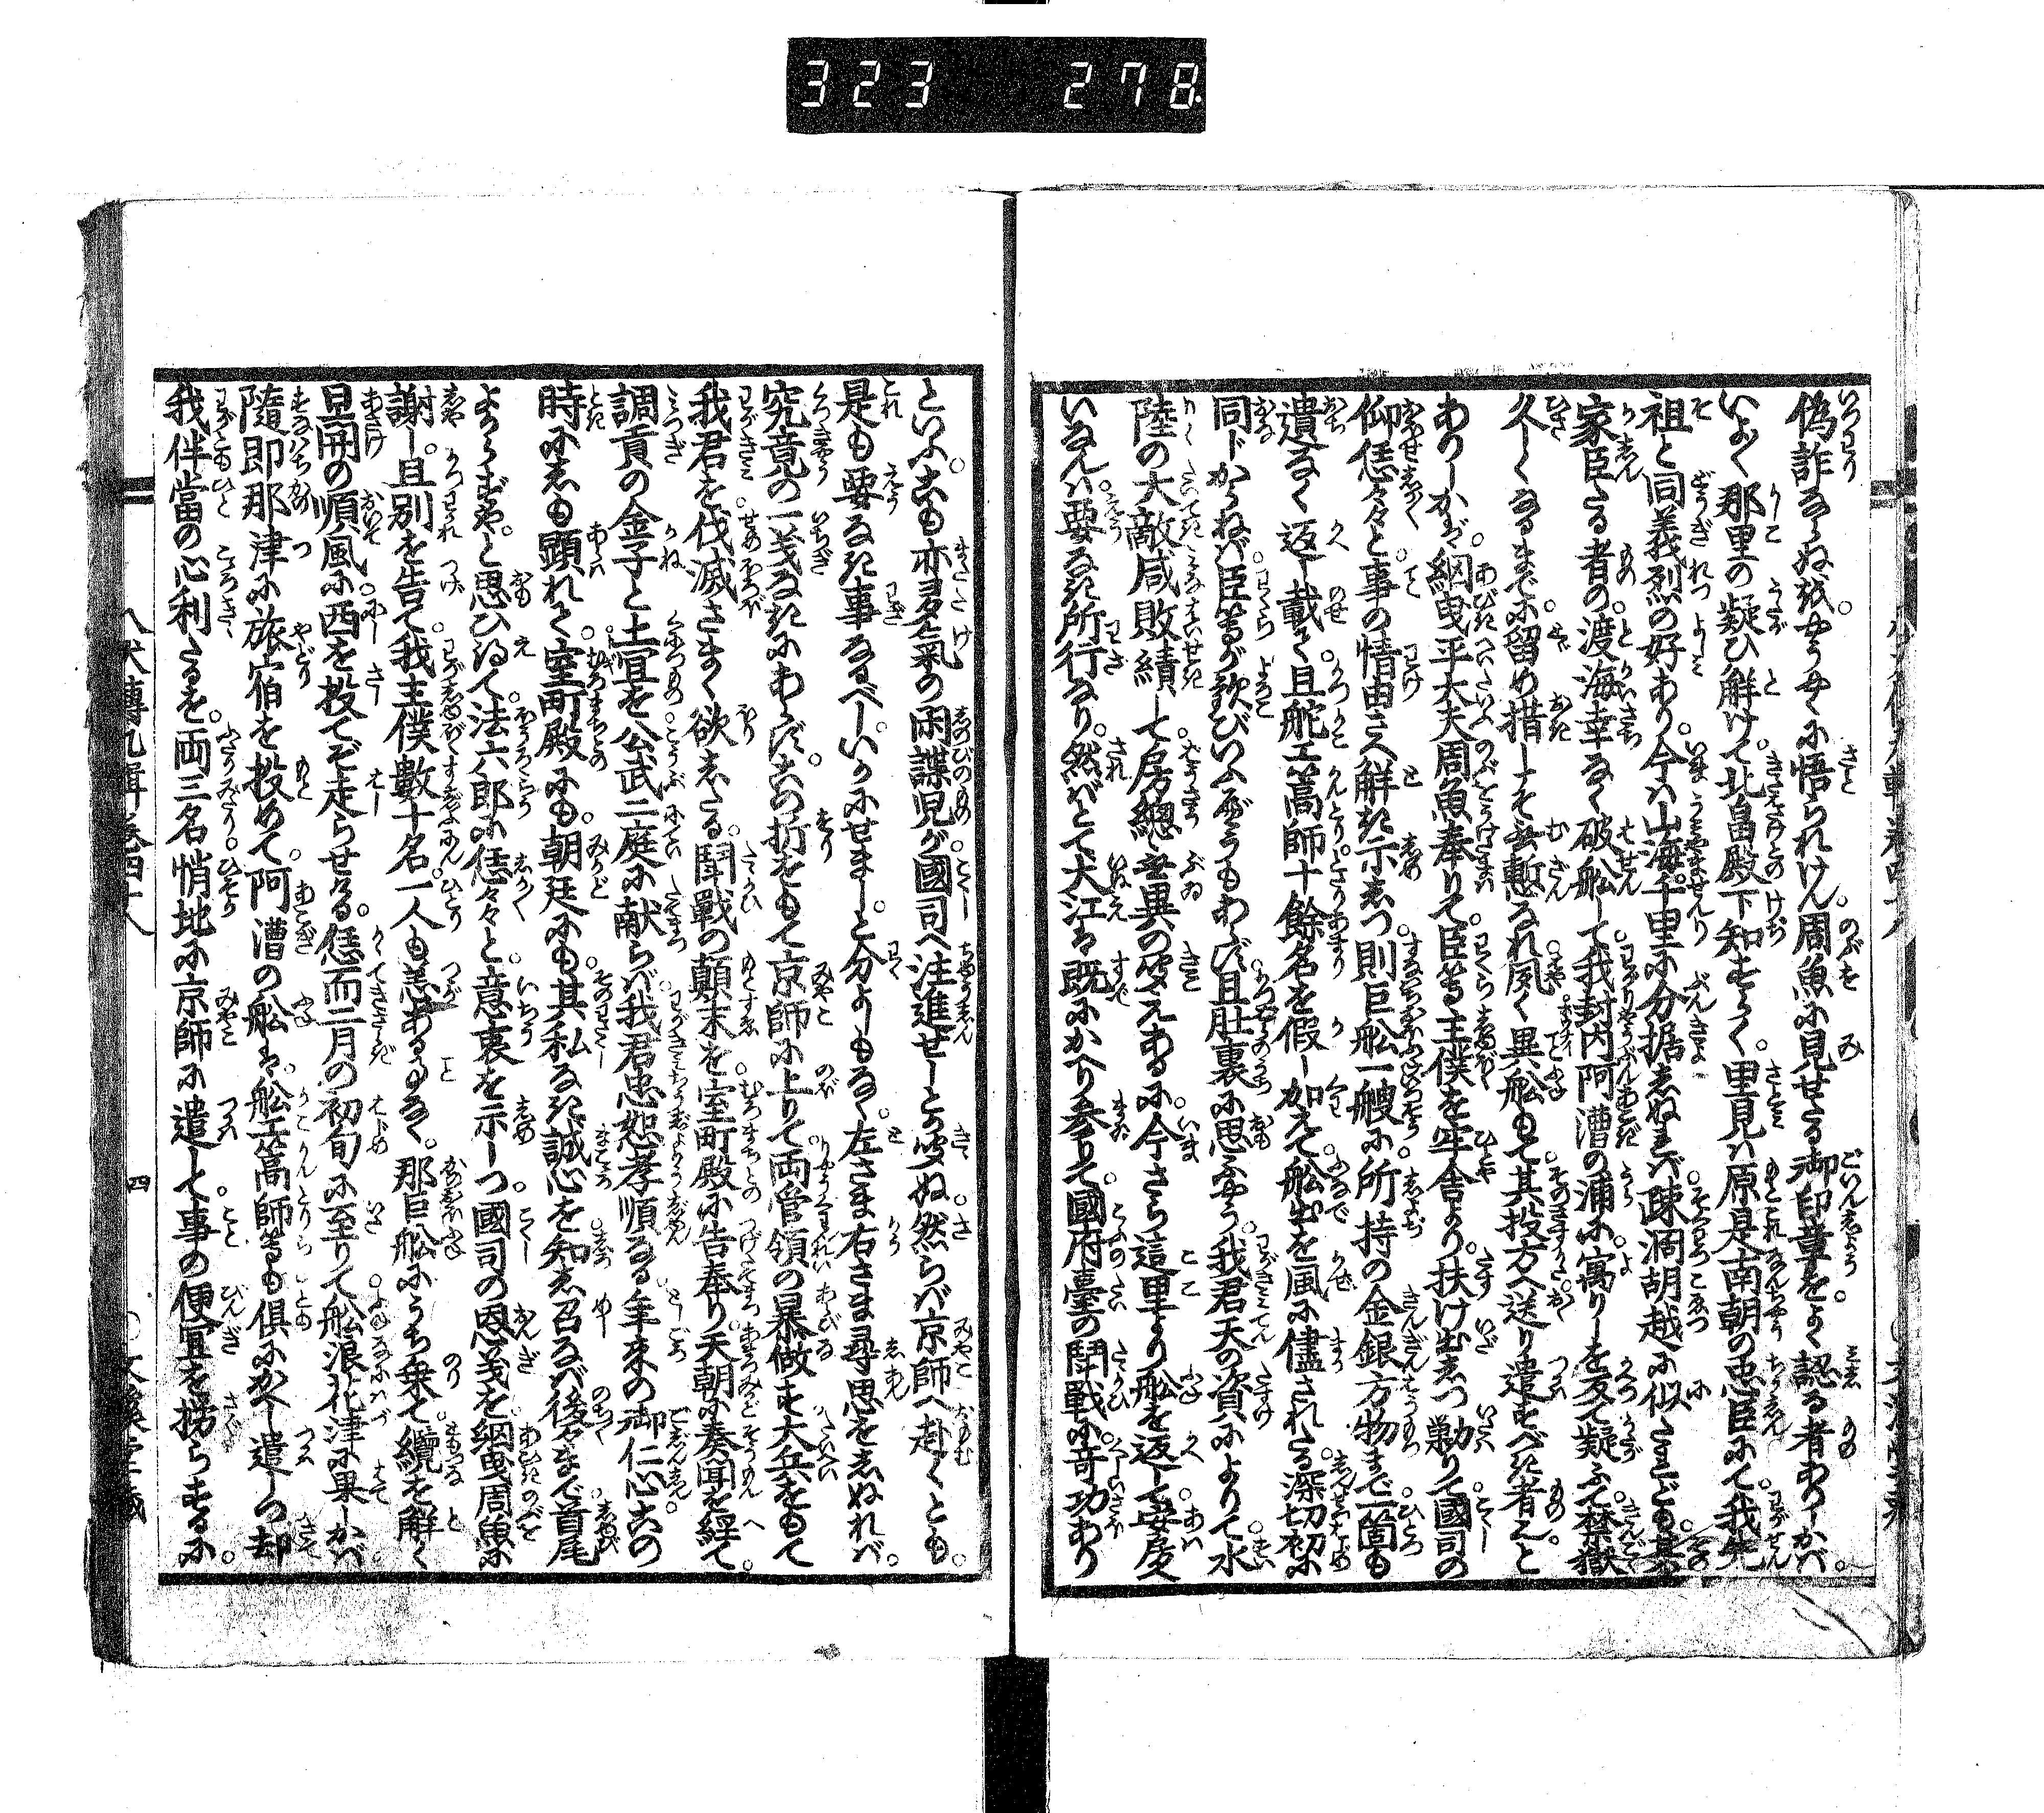 323 278
偽詐ならぬ越、やうやくに悟られけん。周魚に見せたる御印章を、よく認る者ありしかば。
いよいよ那里の疑ひ解けて、北畠殿下知すらく、里見は原是南朝の忠臣にて、我先
祖と同義烈の好あり。今は山海千里に分据しぬれば、疎濶胡越に似たれども、某
家臣たる者の、渡海幸なく破船して、我封内阿漕の浦に寓りしを、疑ふて禁獄
久しくなるまでに、留め措しこそ無慙なれ。夙く異船もて、其投方へ送り遣すべき者也と
ありしかば、綱曳平大夫周魚奉りて、臣等主僕を牢舎より、扶け出しつ勦りて、國司の
仰恁々々と、事の情由さへ解き示しつ、則巨舩一艘に、所持の金銀方物まで、一箇も
遺なく返し載て、且舵工篙師十餘名を假し加えて、舩出を風に儘されたる、深切初に
同じからねば、臣等が歓びいふべうもあらず、且肚裏に思ふやう、我君天の資によりて、水
陸の大敵咸敗績して、房總無異の聞えあるに、今さら這里より舩を返して、安房に
いなんは要なき所行なり。然ばとて大江は既にかへり参りて、國府臺の鬪戰に、奇功あり
といふ。こも亦多氣の間諜児が、國司へ注進せしとか聞ぬ。然らば京師へ赴くとも。
是も要なき事なるべし。いかにせましと分よしもなく、左さま右さま尋思をしぬれば。
究竟の一義なきにあらず。この折をもて京師に上りて、両管領の暴做す大兵をもて
我君を伐滅さまく欲したる、鬪戰の顛末を、室町殿に告奉り、天朝に奏聞を経て。
調貢の金子と土宜を、公武二庭に献らば、我君忠恕孝順なる、年来の御仁心、この
時にしも顕れて、室町殿にも、朝廷にも、其私なき誠心を知し召なば、後々まで首尾
よからずや。と思ひえて、法六郎に恁々と、意衷を示しつ、國司の恩義を綱曳周魚に
謝し、且別を告て、我主僕數十名、一人も恙ある事なく、那巨舩にうち乗て、纜を解く
旦開の順風に、西を投てぞ走らせたる。恁而二月の初旬に至りて、舩浪花津に果しかば。
隨即那津に旅宿を投めて、阿漕の舩は、舩工篙師等も倶にかへし遣しつ、却
我伴當の心利たるを、両三名悄地に京師に遣して、事の便宜を撈らするに。
八犬傳九輯巻四十八
四
○文溪堂藏